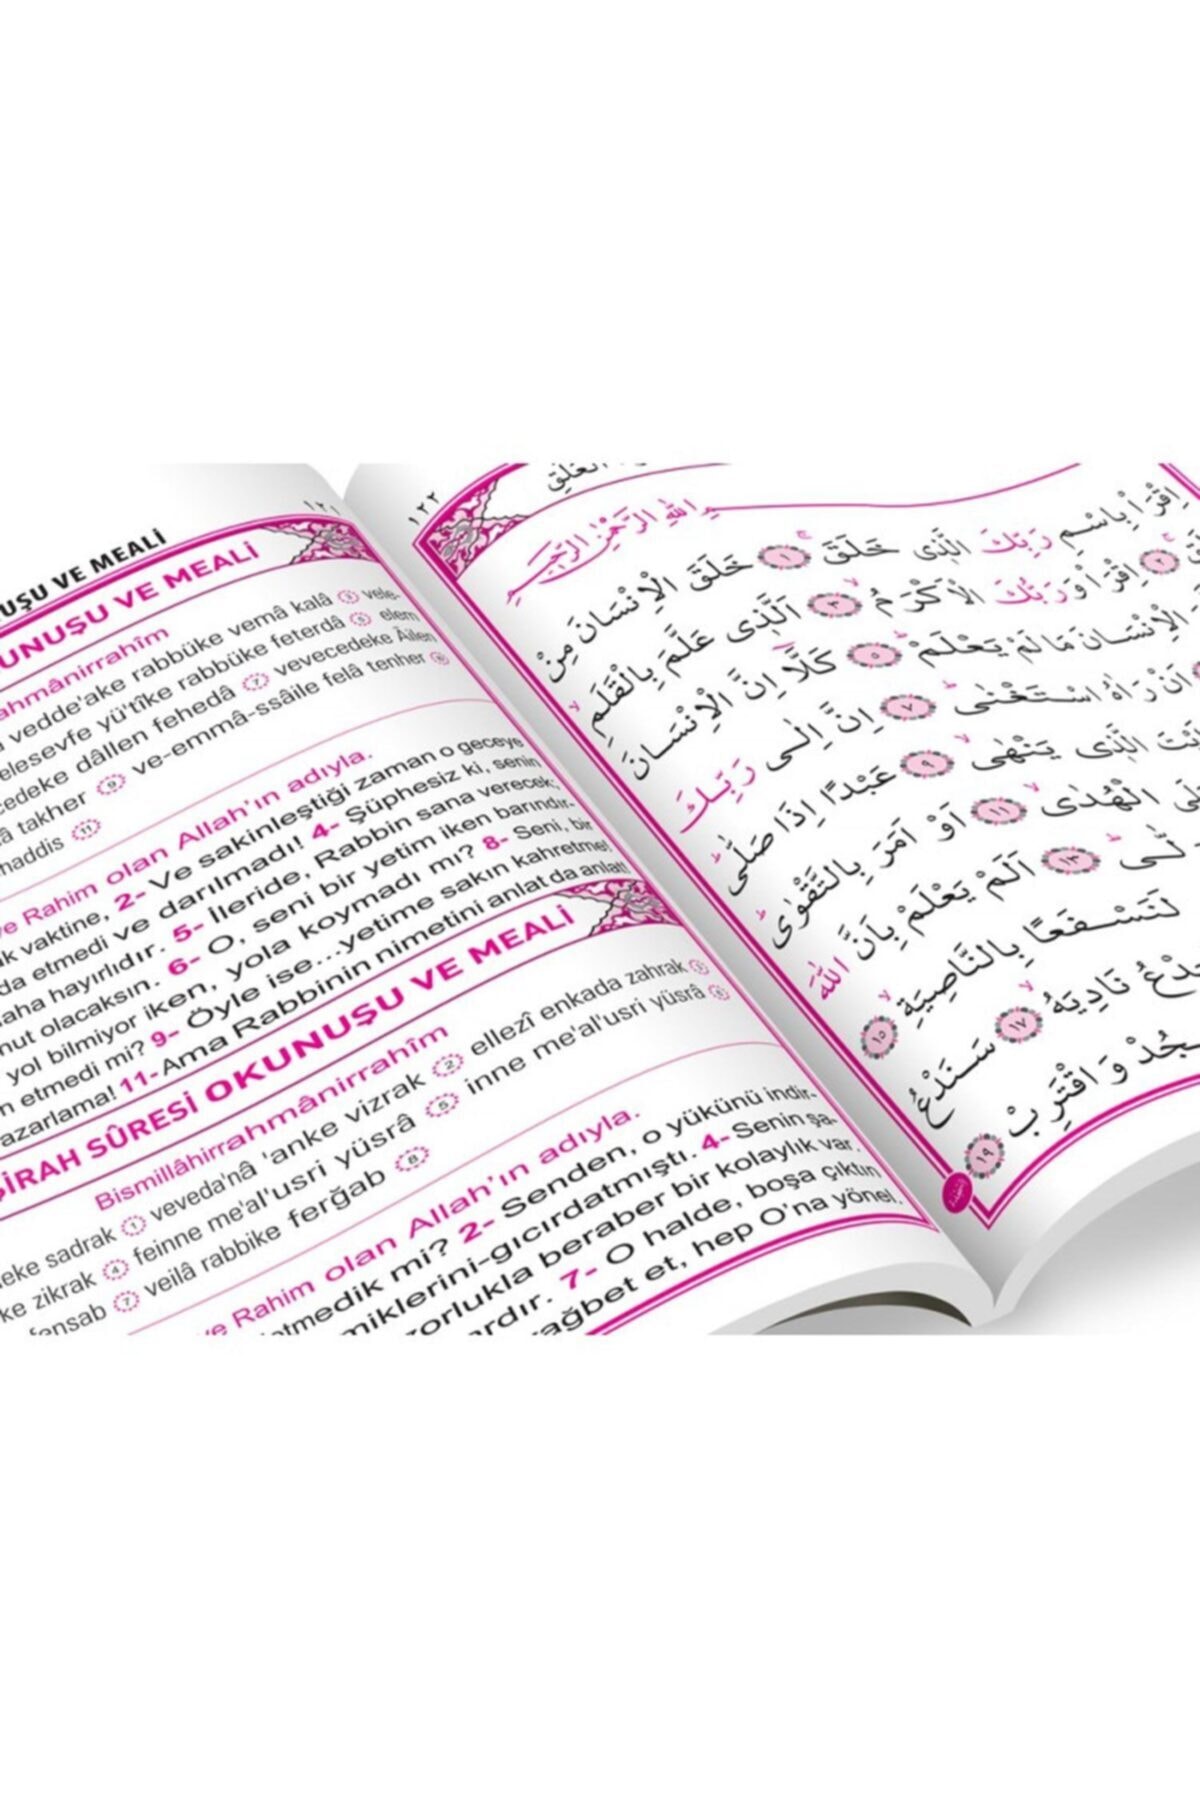 ١٢١
UŞU VE MEALİ
UNUŞU VE MEALİ
ahmânirrahîm
vedde'ake rabbüke vemâ kalâ 3 vele-
elesevfe yü'tîke rabbüke feterdâ 5 elem
cedeke dâllen fehedâ 7 vevecedeke Âilen
â takher 9 ve-emmâ-ssâile felâ tenher 10
haddis 11
ve Rahim olan Allah'ın adıyla.
k vaktine, 2- Ve sakinleştiği zaman o geceye
da etmedi ve darılmadı! 4- Şüphesiz ki, senin
daha hayırlıdır. 5- İleride, Rabbin sana verecek;
nut olacaksın. 6- O, seni bir yetim iken barındır-
yol bilmiyor iken, yola koymadı mı? 8- Seni, bir
n etmedi mi? 9- Öyle ise...yetime sakın kahretme!
azarlama! 11- Ama Rabbinin nimetini anlat da anlat!
ŞİRAH SÛRESİ OKUNUŞU VE MEALİ
Bismillâhirrahmânirrahîm
eke sadrak 1 veveda'nâ 'anke vizrak 2 ellezî enkada zahrak 3
ke zikrak 4 feinne me'al'usri yüsrâ 5 inne me'al'usri yüsrâ 6
fensab 7 veilâ rabbike ferğab 8
ve Rahim olan Allah'ın adıyla.
etmedik mi? 2- Senden, o yükünü indir-
miklerini-gıcırdatmıştı. 4- Senin şa-
zorlukla beraber bir kolaylık var.
ardır. 7- O halde, boşa çıktın
rağbet et, hep O'na yönel.
١٢٢
الْعَلَقِ
اللهِ الرَّحْمٰنِ الرَّحِيمِ
اِقْرَاْ بِاسْمِ رَبِّكَ الَّذِى خَلَقَ ١ خَلَقَ الْاِنْسَانَ مِنْ
٢ اِقْرَاْ وَرَبُّكَ الْاَكْرَمُ ٣ الَّذِى عَلَّمَ بِالْقَلَمِ
الْاِنْسَانَ مَا لَمْ يَعْلَمْ ٥ كَلَّا اِنَّ الْاِنْسَانَ
اَنْ رَاٰهُ اسْتَغْنٰى ٧ اِنَّ اِلٰى رَبِّكَ
الَّذِى يَنْهٰى ٩ عَبْدًا اِذَا صَلّٰى
الْهُدٰى ١١ اَوْ اَمَرَ بِالتَّقْوٰى
١٣ اَلَمْ يَعْلَمْ بِاَنَّ اللهَ
لَنَسْفَعًا بِالنَّاصِيَةِ ١٥
نَادِيَهُ ١٧ سَنَدْعُ
وَاقْتَرِبْ ١٩